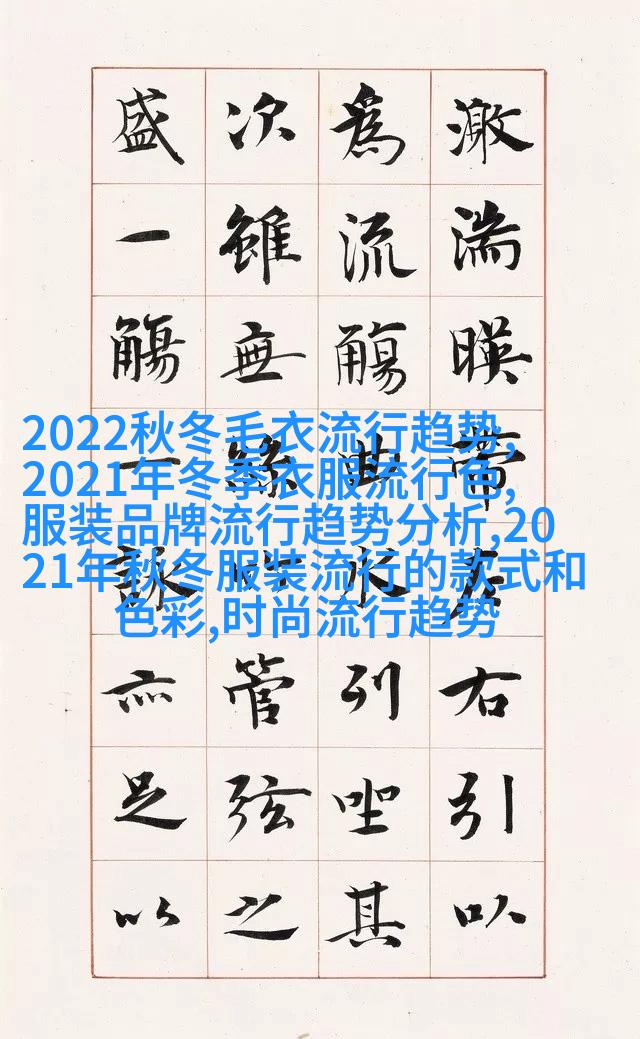 激湍暎帶左右引以
為流觴曲水列坐其
次雖無絲竹管弦之
盛一觴一詠亦足以
2022秋冬毛衣流行趋势,
2021年冬季衣服流行色,
服装品牌流行趋势分析,20
21年秋冬服装流行的款式和
色彩,时尚流行趋势